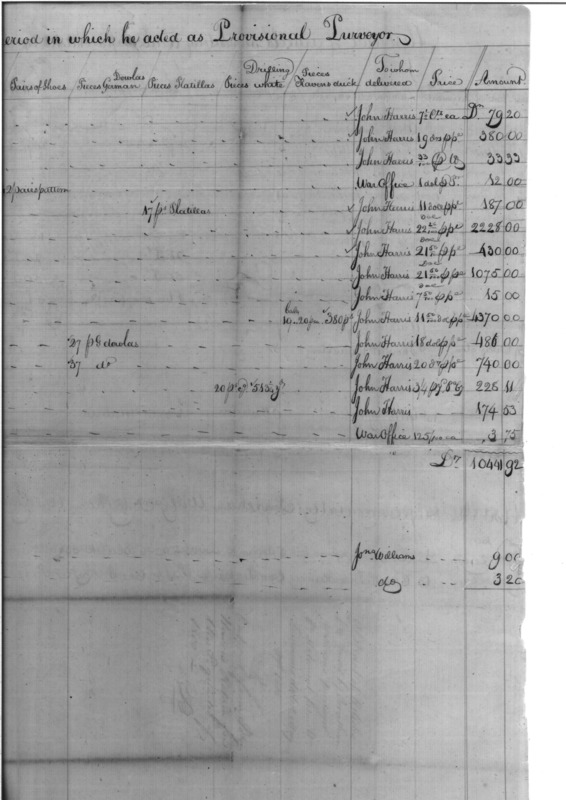 eriod in which he acted as Provisional Purveyor.
Pairs of Shoes Pieces German Dowlas Pieces Platillas Pieces Drilling white Pieces Ravens duck To whom delivered Price Amount
John Harris ea Drs 79 20
John Harris 19 380 00
John Harris 33 33
2 pairs pattern War Office 1 dol p 12 00
17 ps Platillas John Harris 11 dol p ps 187 00
John Harris 22 p ps 2228 00
John Harris 21 p ps 430 00
John Harris 21 p ps 1075 00
John Harris 7 p ps 15 00
380 ps John Harris 11 p ps 4370 00
27 ps G dowlas John Harris 18 dol p ps 486 00
37 do John Harris 20 p ps 740 00
20 ps John Harris 34 228 11
John Harris 174 53
War Office 125 ea 3 75
Drs 10441 92
Jona Williams 9 00
do 3 20